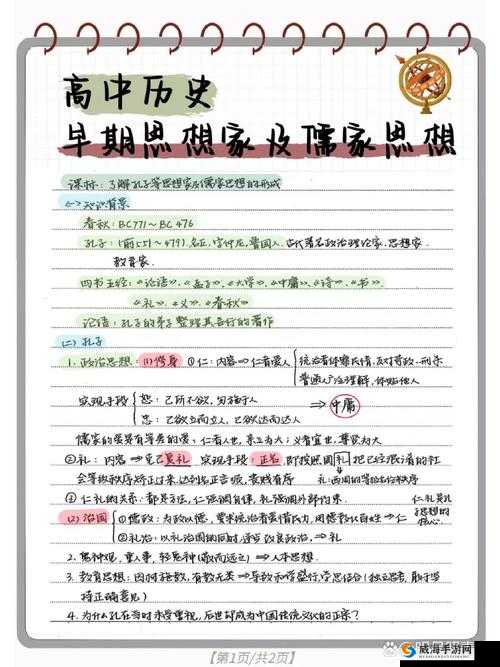 高中历史
早期思想家及儒家思想
课标：了解孔子等思想家及儒家思想的形成
(一)知识背景
春秋：BC771～BC476
孔子：(前551～479)，名丘，字仲尼，鲁国人，古代著名政治理论家、思想家、
教育家.
四书五经：《论语》、《孟子》、《大学》、《中庸》、《诗》、《书》、
《礼》、《义》、《春秋》
论语：孔子的弟子整理其言行的著作
(二)孔子
1. 政治思想：(1)修身 ①仁：内容⇒仁者爱人 统治者体察民情，反对苛政、刑杀
普通人：治理解，体贴他人
实现手段 恕：己所不欲，勿施于人 ⇒中庸
忠：己欲立而立人，己欲达而达人
儒家的爱是有等差的爱：仁者人也，亲亲为大；义者宜也，尊贤为大
②礼：内容→克己复礼 实现手段：正名，即按照周礼把已经混淆的社
会等级秩序矫正过来，达到名正言顺，贵贱有序 礼：西周的等级名位秩序
③仁礼的关系：都是方法，仁强调自律，礼强调外部约束. 仁、礼是孔
子思想的
核心.
(2)治国 ①德政：为政以德，要求统治者爱惜民力，用德教化百姓→仁
②礼治：以礼治国的同时，逐步改良政治，→礼
2. 鬼神观：重人事，轻鬼神(敬而远之)→人本思想.
3. 教育思想：因材施教，有教无类⇒学思结合(独立思考，敢于坚
持正确意见)
4. 为什么孔在当时未受重视，后世却成为中国传统文化的正宗？
【第1页/共2页】
威海手游网